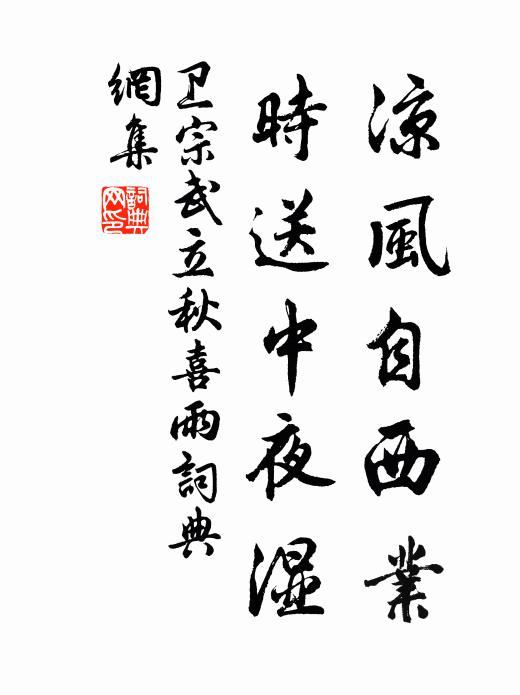 凉風自西業
時送中夜湿
卫宗武立秋喜雨詞典
網集
詞典网印